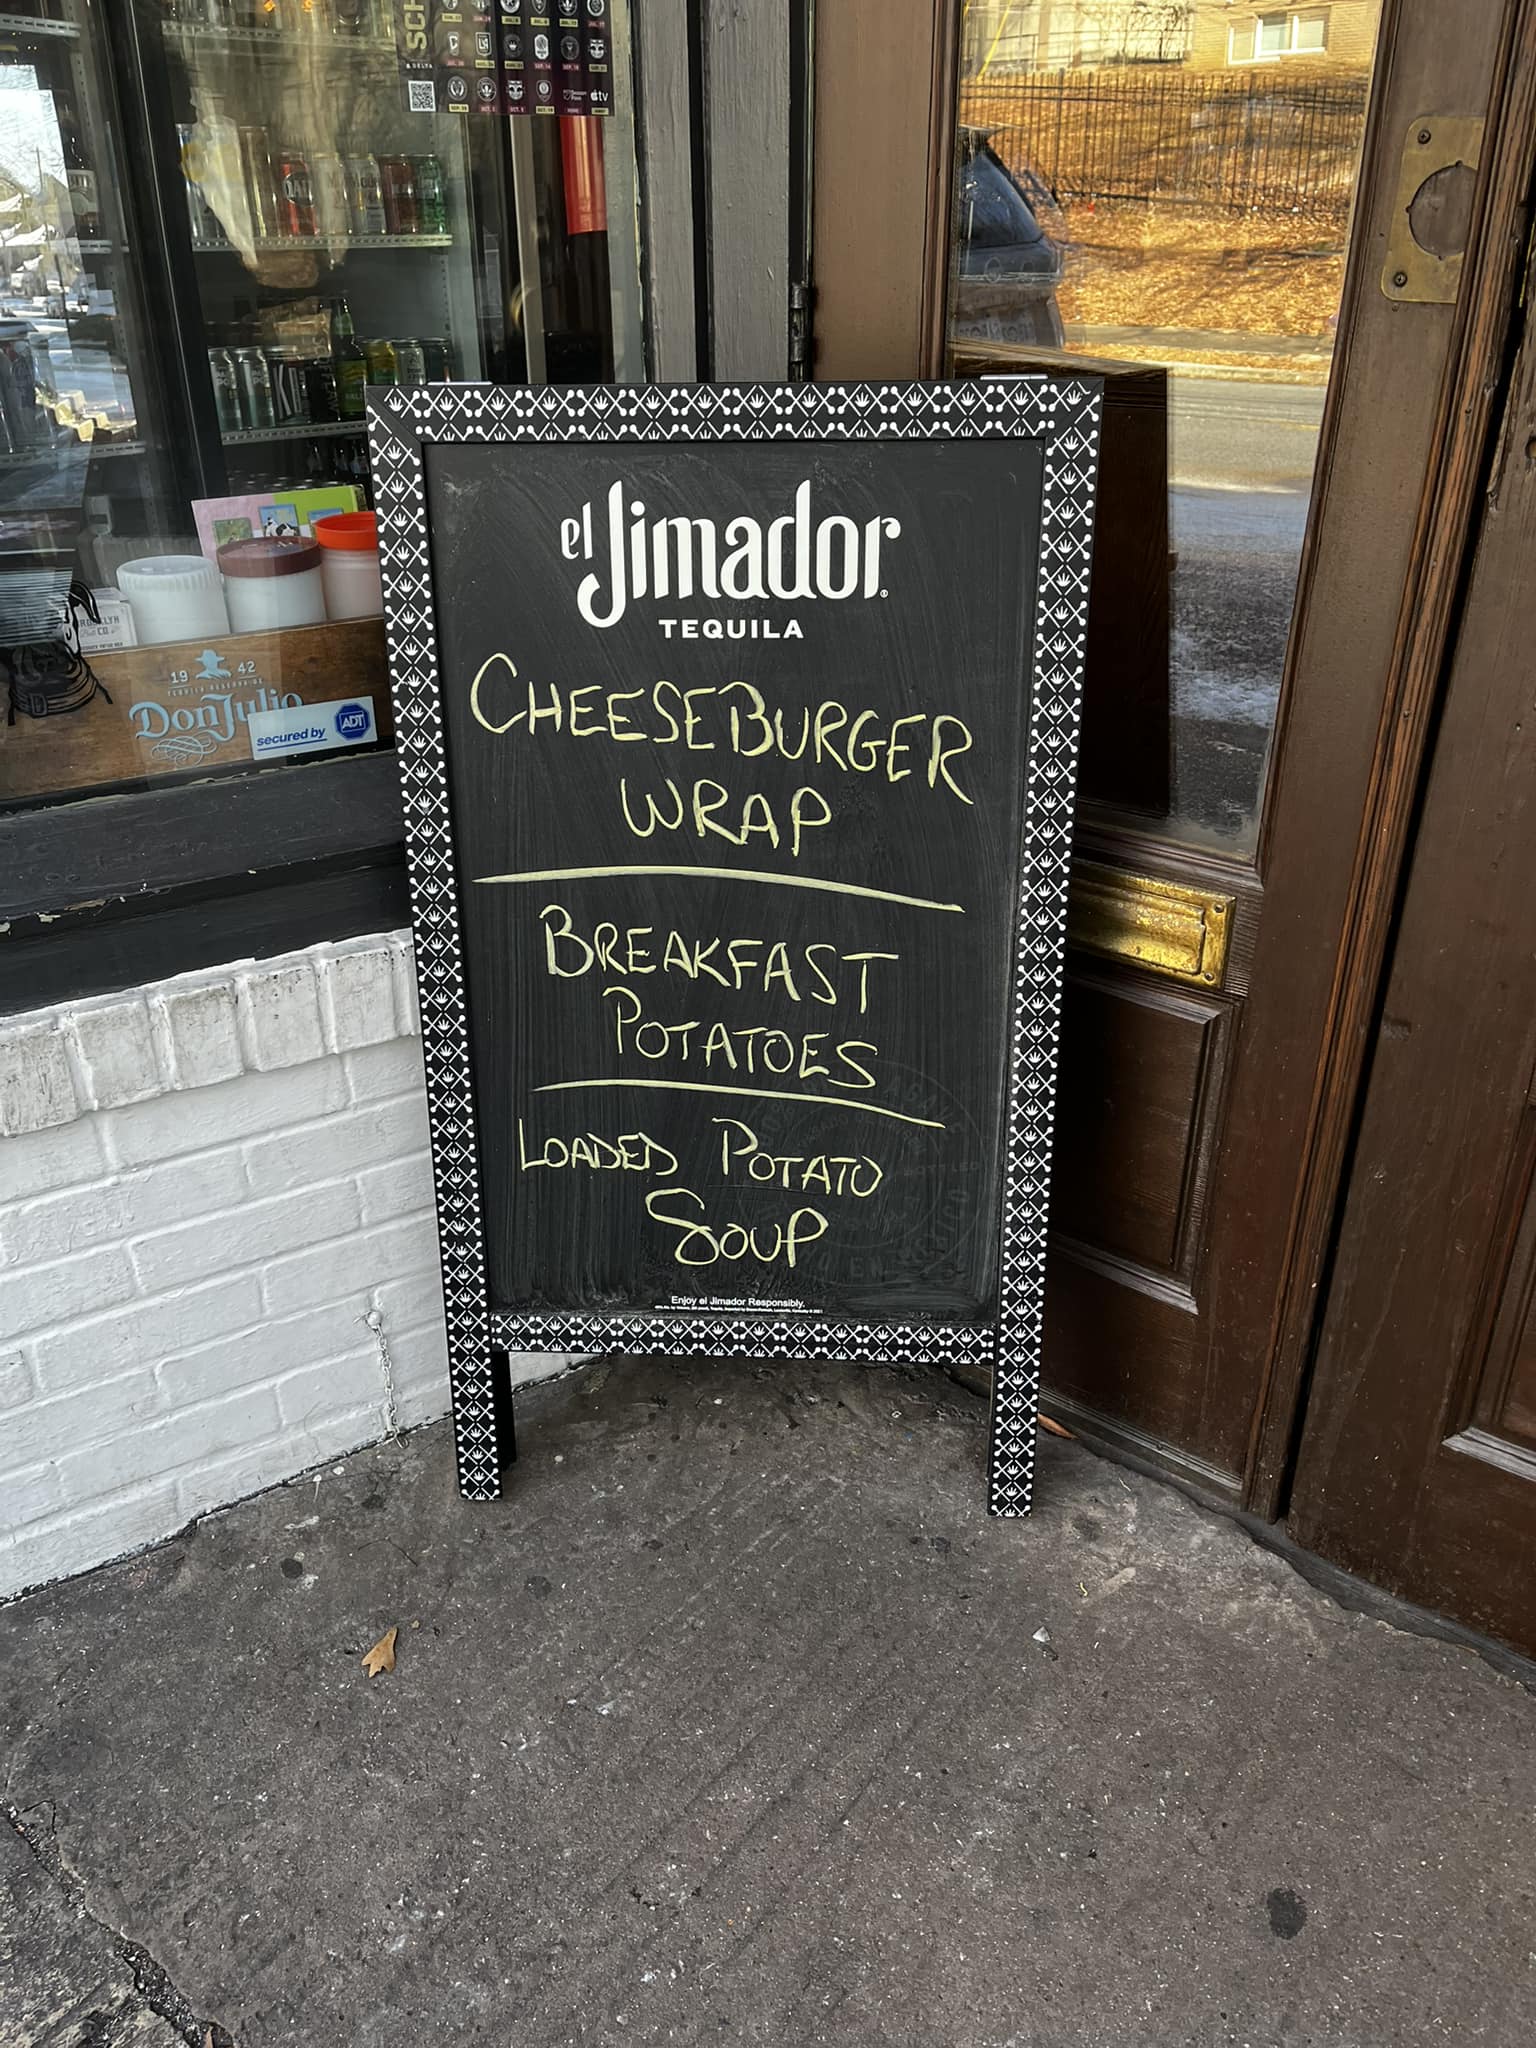 SCH
DELTA
tv
19 42
Don Julio
secured by ADT
el Jimador
TEQUILA
CHEESEBURGER
WRAP
BREAKFAST
POTATOES
LOADED POTATO
SOUP
Enjoy el Jimador Responsibly.